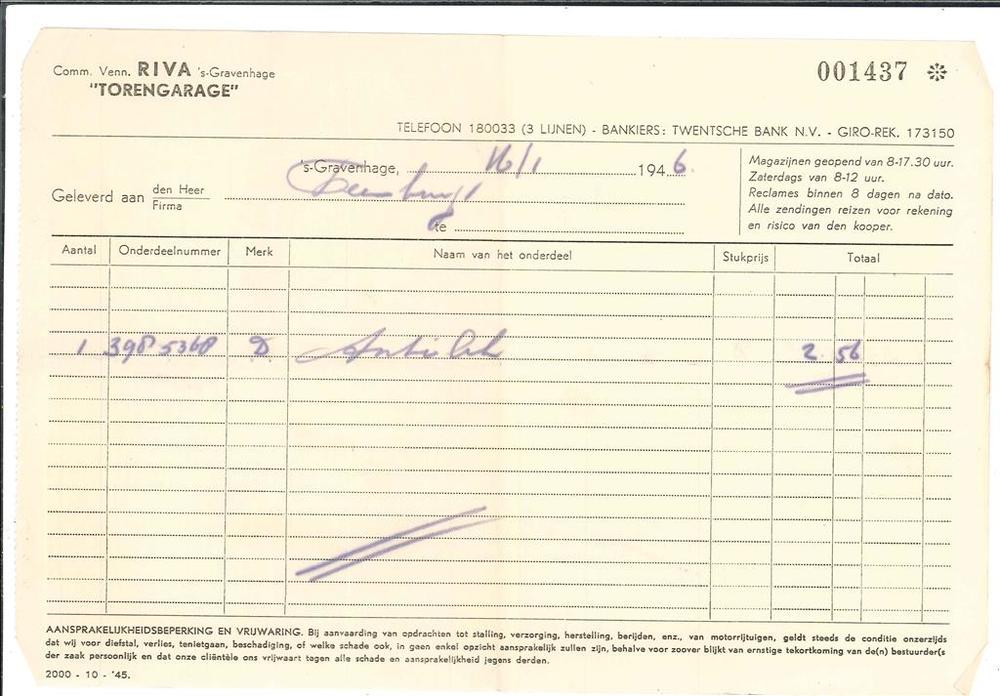 Comm. Venn. RIVA 's-Gravenhage
"TORENGARAGE"
001437
TELEFOON 180033 (3 LIJNEN) - BANKIERS: TWENTSCHE BANK N.V. - GIRO-REK. 173150
's-Gravenhage, 16/1 1946.
Geleverd aan den Heer
Firma
te
Magazijnen geopend van 8-17.30 uur.
Zaterdags van 8-12 uur.
Reclames binnen 8 dagen na dato.
Alle zendingen reizen voor rekening
en risico van den kooper.
Aantal Onderdeelnummer Merk Naam van het onderdeel Stukprijs Totaal
1 398 5368 D 2 56
AANSPRAKELIJKHEIDSBEPERKING EN VRIJWARING. Bij aanvaarding van opdrachten tot stalling, verzorging, herstelling, berijden, enz., van motorrijtuigen, geldt steeds de conditie onzerzijds
dat wij voor diefstal, verlies, tenietgaan, beschadiging, of welke schade ook, in geen enkel opzicht aansprakelijk zullen zijn, behalve voor zoover blijkt van ernstige tekortkoming van de(n) bestuurder(s
der zaak persoonlijk en dat onze cliëntèle ons vrijwaart tegen alle schade en aansprakelijkheid jegens derden.
2000 - 10 - '45.